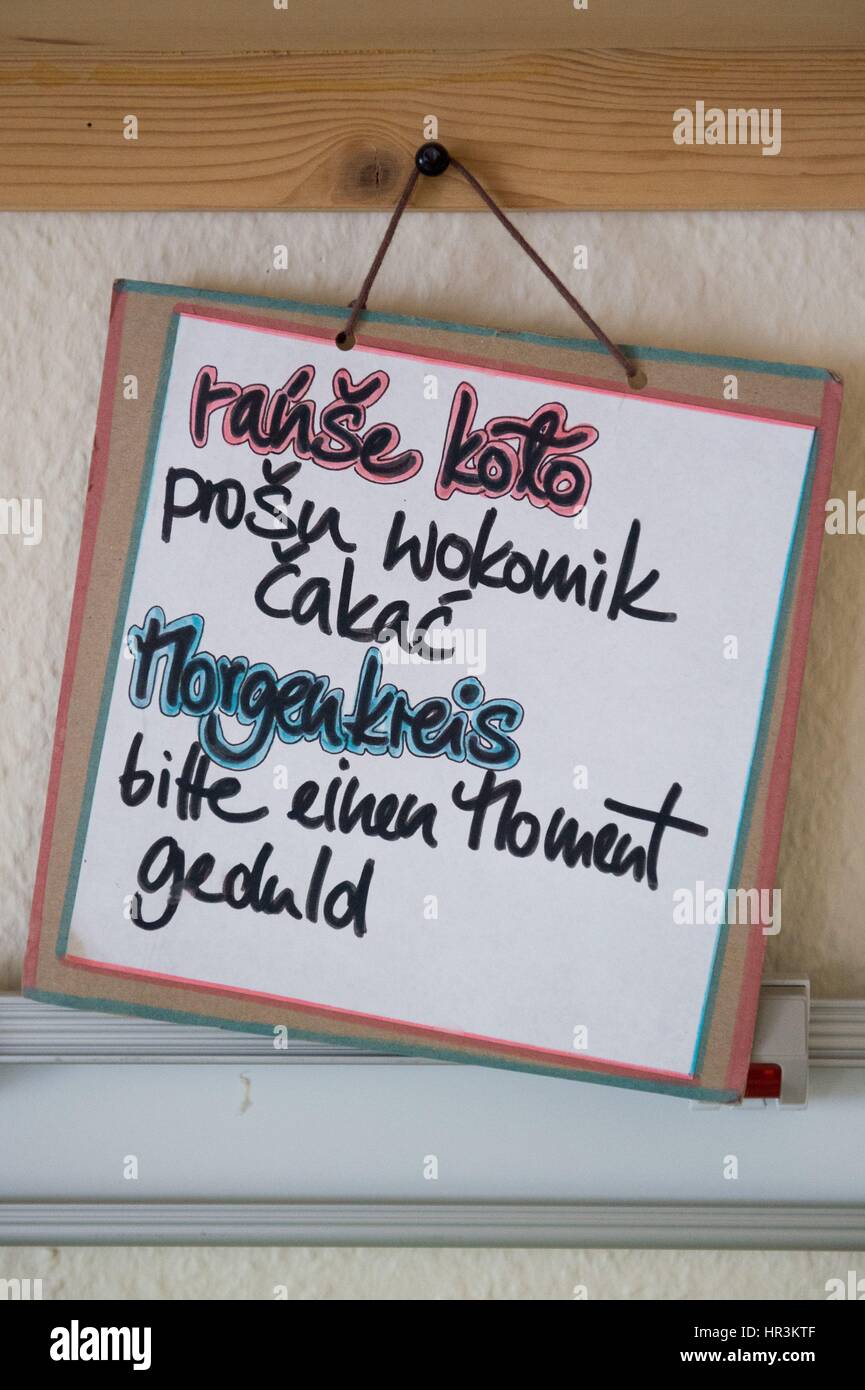 rańše koło
prošu wokomik
čakać
Morgenkreis
bitte einen Moment
geduld
alamy
Image ID: HR3KTF
www.alamy.com